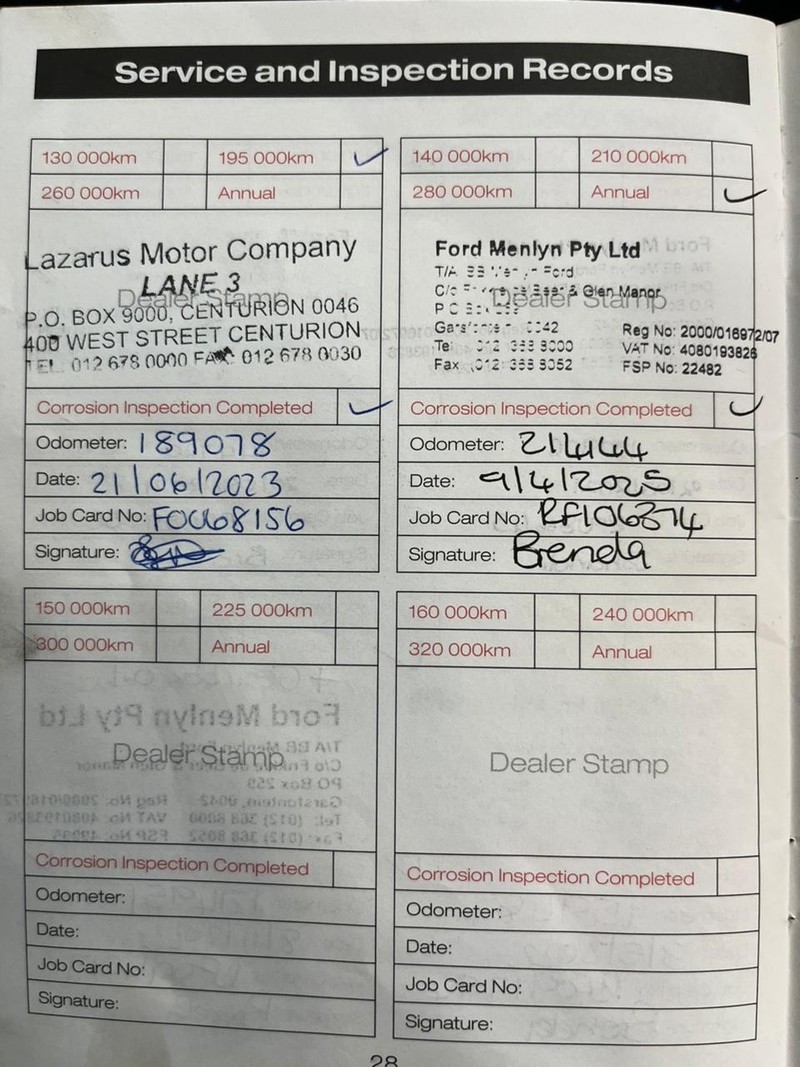 Service and Inspection Records
130 000km 195 000km ✓
260 000km Annual
Lazarus Motor Company
LANE 3
Dealer Stamp
P.O. BOX 9000, CENTURION 0046
400 WEST STREET CENTURION
TEL 012 678 0000 FAX 012 678 0030
Corrosion Inspection Completed ✓
Odometer: 189078
Date: 21/06/2023
Job Card No: FOCC68156
Signature:
140 000km 210 000km
280 000km Annual ✓
Ford Menlyn Pty Ltd
T/A Ford
C/o & Glen Manor
Dealer Stamp
0042 Reg No: 2000/016972/07
Te 012 368 8000 VAT No: 4080193826
Fax (012) 368 8052 FSP No: 22482
Corrosion Inspection Completed ✓
Odometer: 214144
Date: 9/4/2025
Job Card No:
Signature: Brenda
150 000km 225 000km
300 000km Annual
Ford Menlyn Pty Ltd
Dealer Stamp
Corrosion Inspection Completed
Odometer:
Date:
Job Card No:
Signature:
160 000km 240 000km
320 000km Annual
Dealer Stamp
Corrosion Inspection Completed
Odometer:
Date:
Job Card No:
Signature:
28